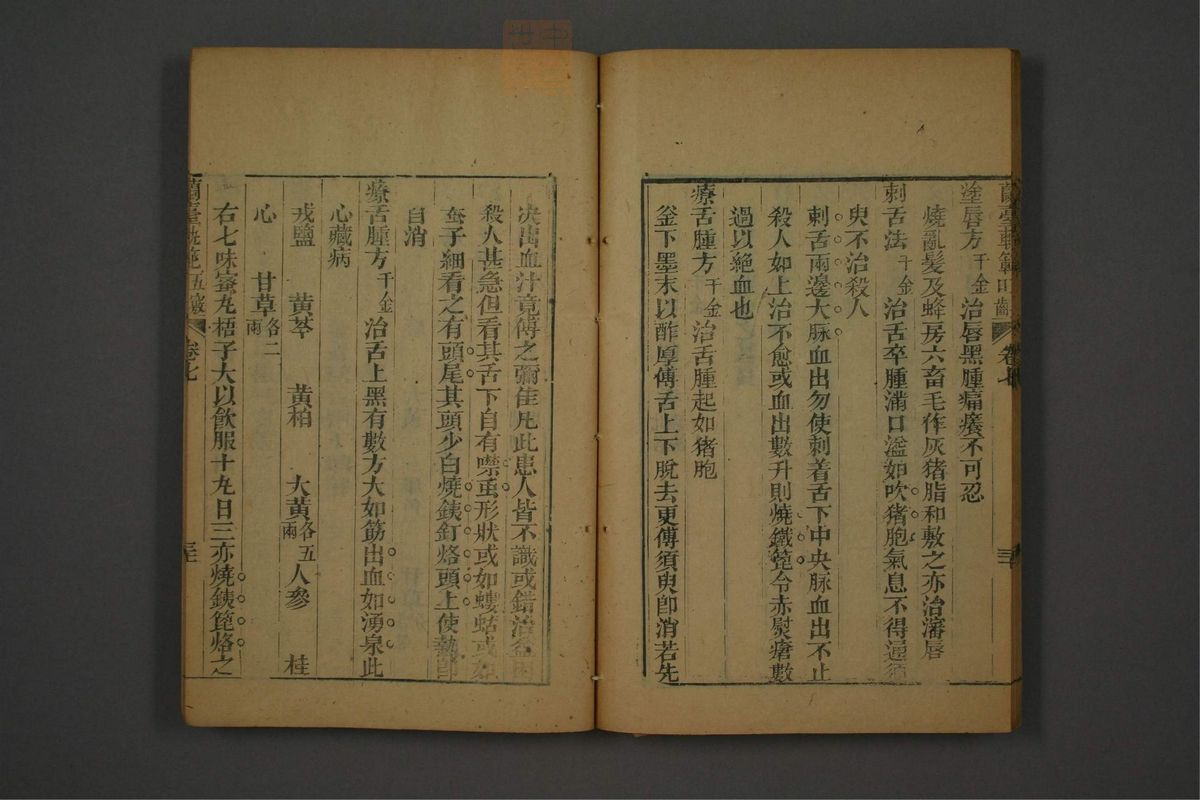 蘭臺軌範口齒 卷七
塗唇方千金 治唇黑腫痛癢不可忍
燒亂髮及蜂房六畜毛作灰猪脂和敷之亦治瀋唇
刺舌法千金 治舌卒腫滿口溢如吹猪胞氣息不得通須
臾不治殺人
刺舌兩邊大脉血出勿使刺着舌下中央脉血出不止
殺人如上治不愈或血出數升則燒鐵篦令赤熨瘡數
過以絕血也
療舌腫方千金 治舌腫起如猪胞
釜下墨末以酢厚傅舌上下脫去更傅須臾卽消若先
决出血汁竟傅之彌佳凡此患人皆不識或錯治益困
殺人甚急但看其舌下自有噤䖝形狀或如螻蛄或如
蚕子細看之有頭尾其頭少白燒鉄釘烙頭上使熱卽
自消
療舌腫方千金 治舌上黑有數方大如筯出血如湧泉此
心藏病
戎鹽 黃芩 黃栢 大黃各五兩 人參 桂
心 甘草各二兩
右七味蜜丸梧子大以飲服十丸日三亦燒鉄篦烙之
蘭臺軌範五竅 卷七